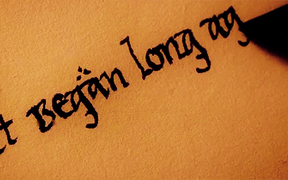 t Began long ag